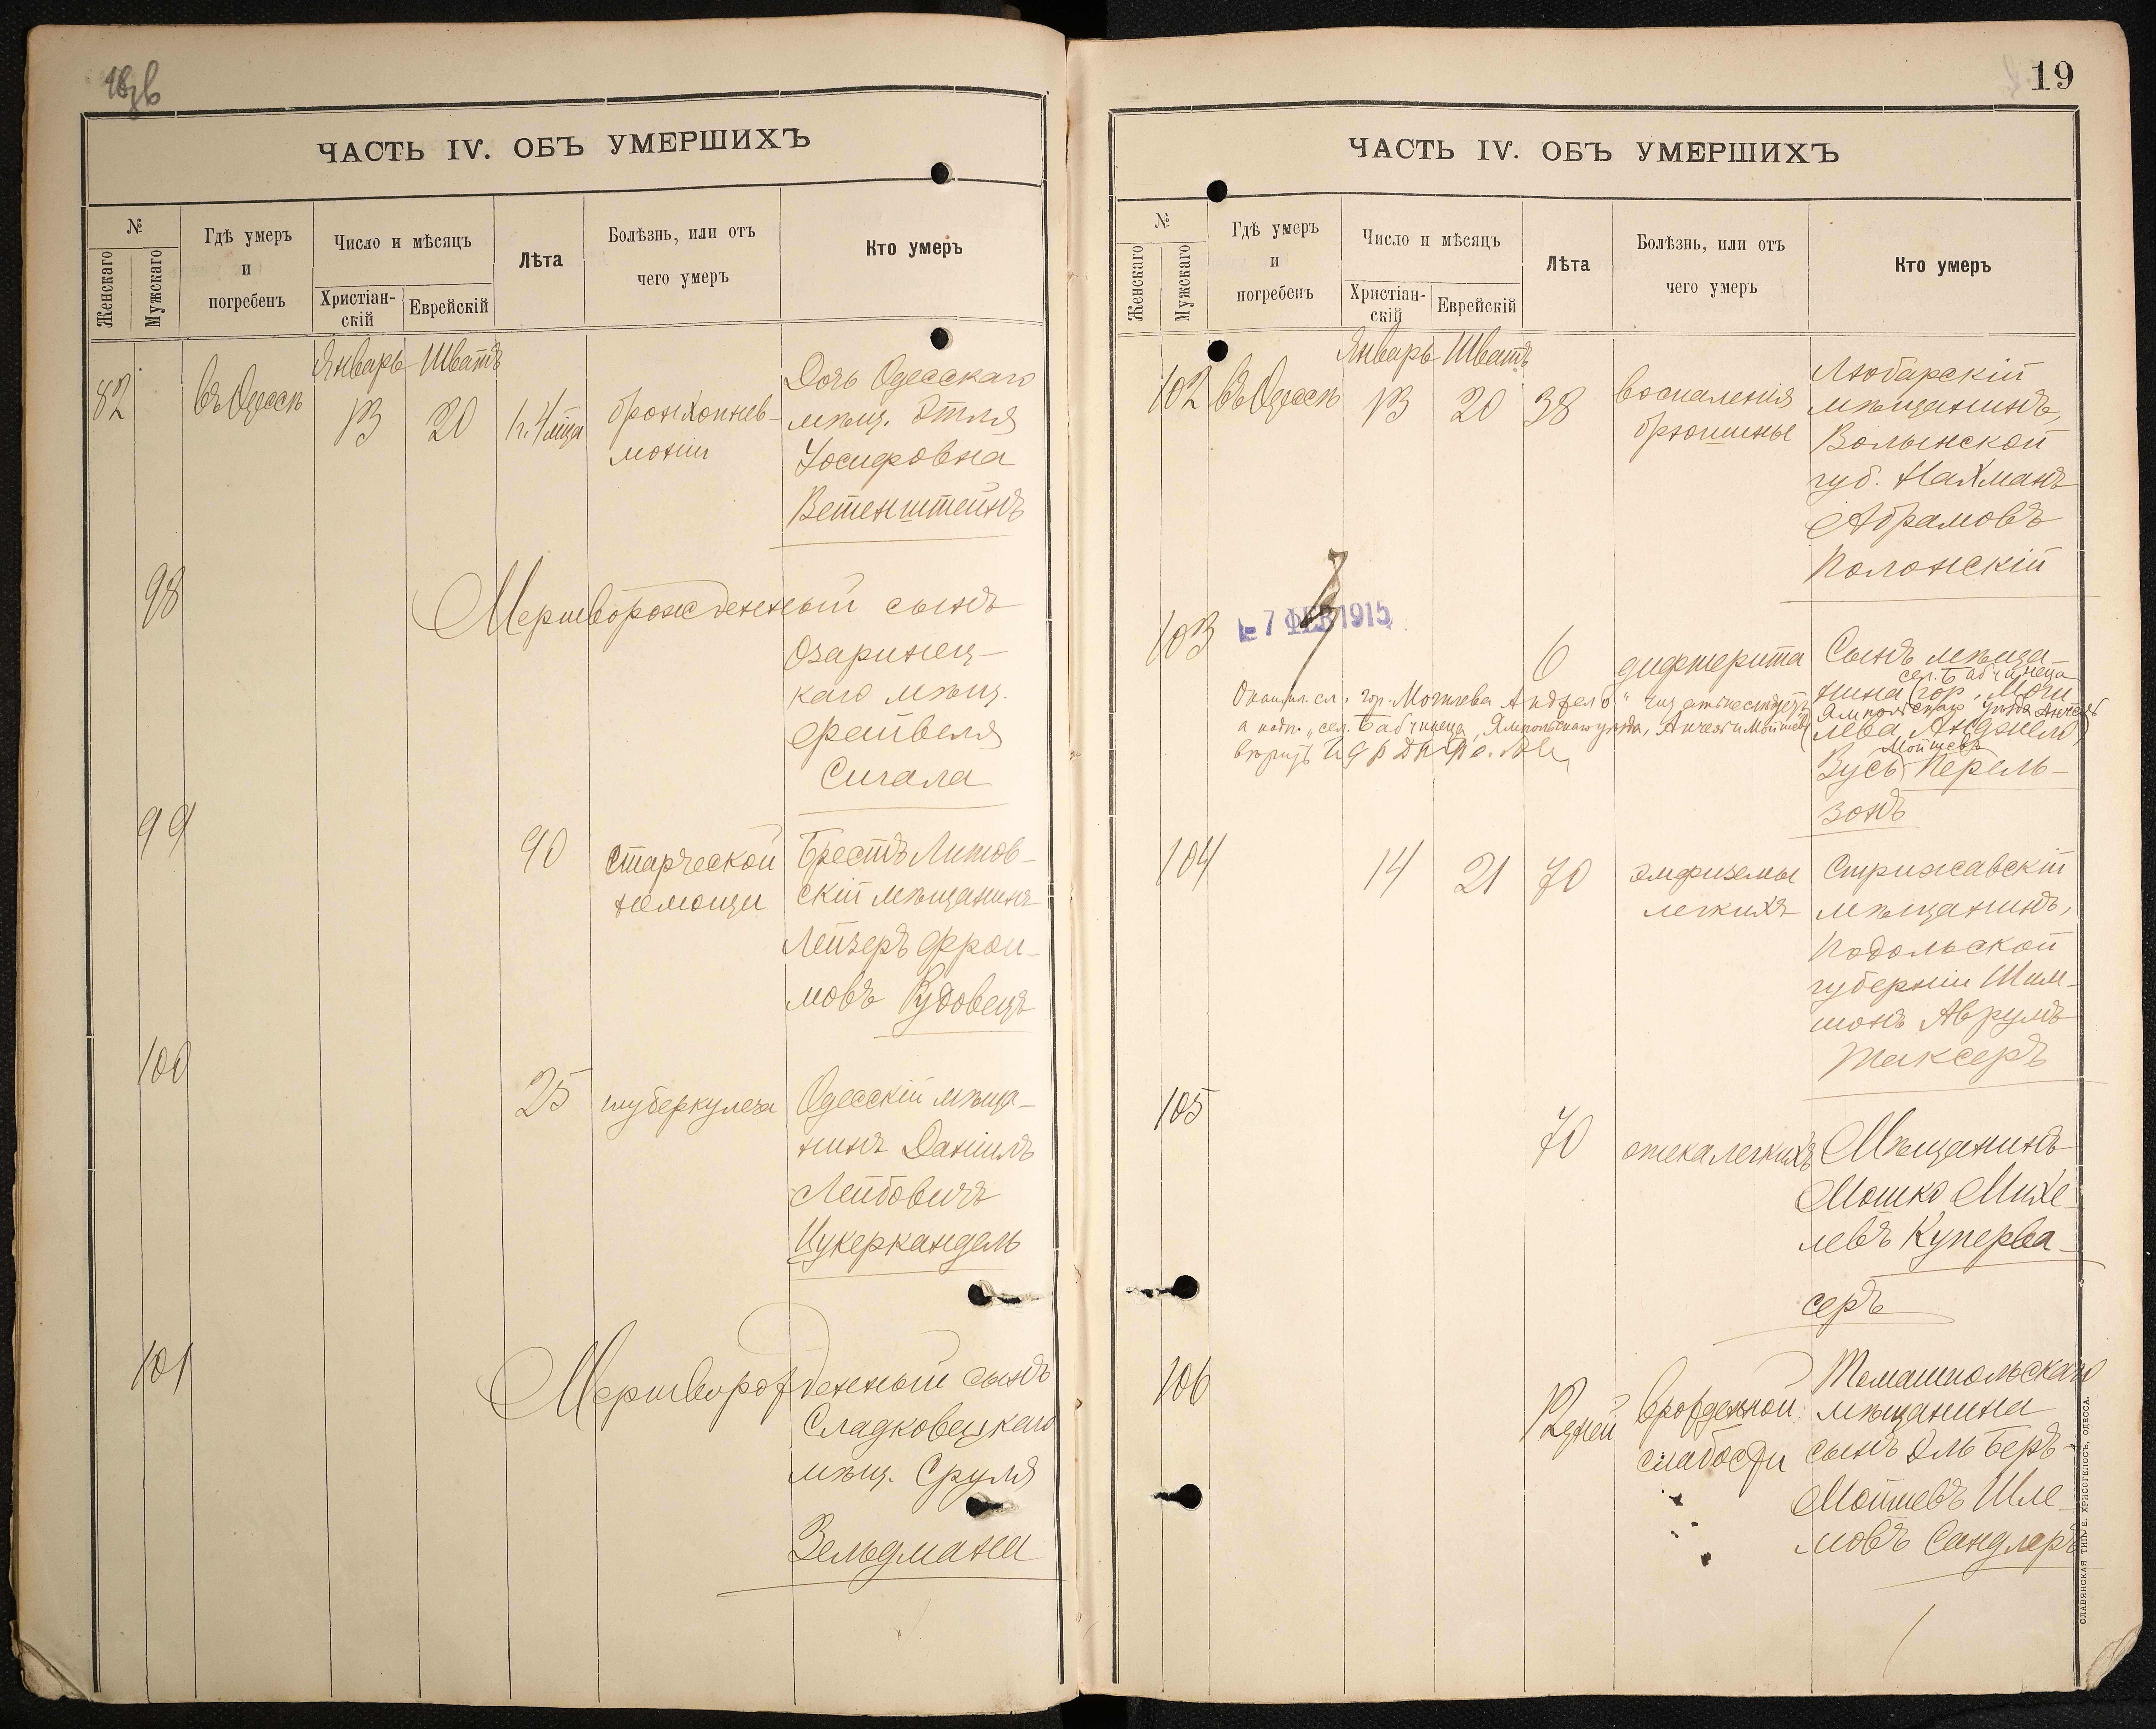 ЧАСТЬ IV. ОБЪ УМЕРШИХЪ
№
Женскаго
Мужскаго
Гдѣ умеръ
и
погребенъ
Число и мѣсяцъ
Христіан-
скій
Еврейскій
Лѣта
Болѣзнь, или отъ
чего умеръ
Кто умеръ
Январь Шватъ
82 въ Одессѣ 13 20
бронхопнев-
моніи
Дочь Одесскаго
мѣщ. Этля
Іосифовна
Ветенштейнъ
98
Мертворожденный сынъ
Озаринец-
каго мѣщ.
Файвеля
Сигала
99
90
старческой
немощи
Брестъ Литов-
скій мѣщанинъ
Лейзеръ Фрои-
мовъ Рудовецъ
100
25
туберкулеза
Одесскій мѣща-
нинъ Даніилъ
Лейбовичъ
Цукеркандель
101
Мертворожденный сынъ
Сладковецкаго
мѣщ. Сруля
Зельдмана
19
ЧАСТЬ IV. ОБЪ УМЕРШИХЪ
№
Женскаго
Мужскаго
Гдѣ умеръ
и
погребенъ
Число и мѣсяцъ
Христіан-
скій
Еврейскій
Лѣта
Болѣзнь, или отъ
чего умеръ
Кто умеръ
Январь Шватъ
102 въ Одессѣ 13 20 38
воспаленія
брюшины
Любарскій
мѣщанинъ,
Волынской
губ. Нахманъ
Абрамовъ
Полонскій
103
- 7 ФЕВ 1915
6
дифтерита
Сынъ мѣща-
сел. Бабчинеца
нина (гор. Моги
Ямпольскаго уѣзда
лева
Мошевъ
Вусь Перель-
зонъ
гор. Могилева
сел. Бабчинеца, Ямпольскаго уѣзда,
104
14 21 70
эмфиземы
легкихъ
Стрижавскій
мѣщанинъ,
Подольской
губерніи Шим-
шонъ Аврумъ
Таксеръ
105
70
отека легкихъ
Мѣщанинъ
Мошко Михе-
левъ Куперва-
серъ
106
12 дней
врожденной
слабости
Томашпольскаго
мѣщанина
сынъ Эль Беръ-
Мойшевъ Шле-
мовъ Сандлеръ
СЛАВЯНСКАЯ ТИП. Е. ХРИСОГЕЛОСЪ, ОДЕССА.